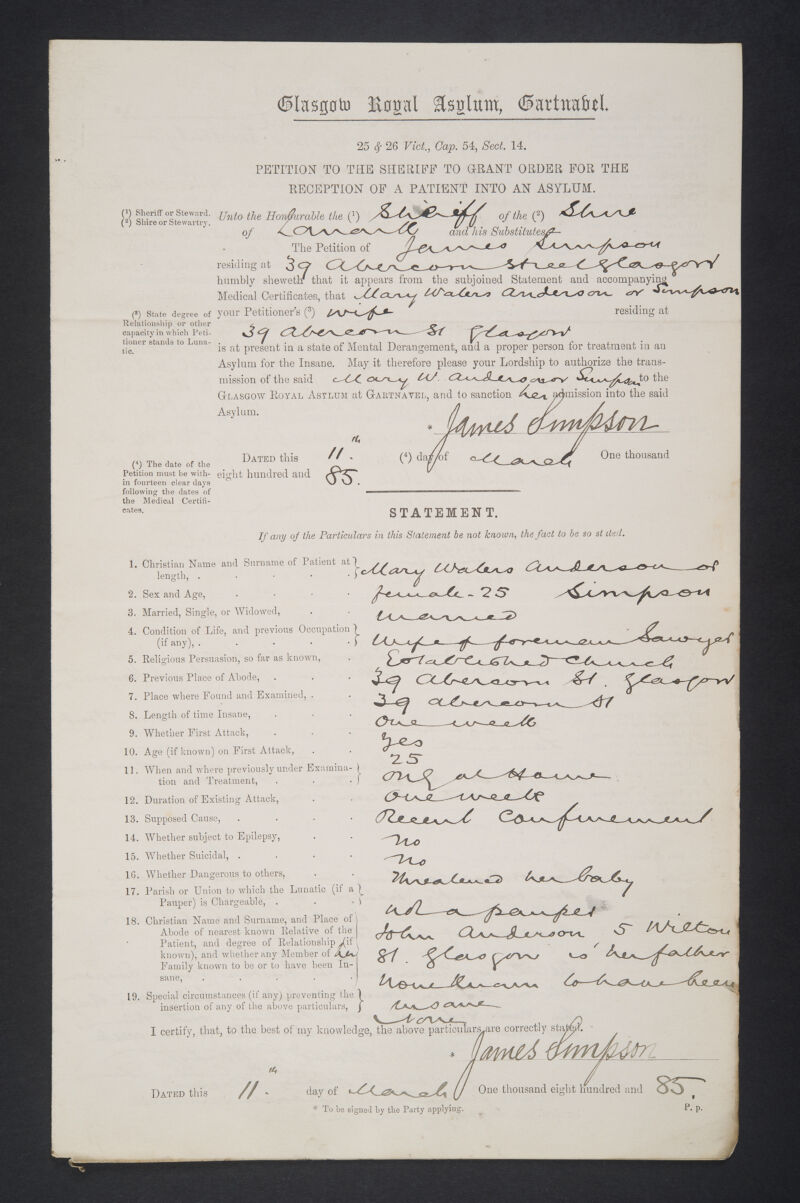 Glasgow Royal Asylum, Gartnabel.
25 & 26 Vict., Cap. 54, Sect. 14.
PETITION TO THE SHERIFF TO GRANT ORDER FOR THE
RECEPTION OF A PATIENT INTO AN ASYLUM.
(¹) Sheriff or Steward.
(²) Shire or Stewartry.
Unto the Honourable the (¹) Sheriff of the (²) Shire
of Lanark and his Substitutes
The Petition of James Simpson
residing at 39 Abercorn Street Glasgow
humbly sheweth that it appears from the subjoined Statement and accompanying
Medical Certificates, that Mary Waters Anderson or Simpson
(³) State degree of
Relationship or other
capacity in which Peti-
tioner stands to Luna-
tic.
your Petitioner's (³) wife residing at
39 Abercorn St Glasgow
is at present in a state of Mental Derangement, and a proper person for treatment in an
Asylum for the Insane. May it therefore please your Lordship to authorize the trans-
mission of the said Mary W. Anderson or Simpson to the
GLASGOW ROYAL ASYLUM at GARTNAVEL, and to sanction her admission into the said
Asylum.
* James Simpson
(⁴) The date of the
Petition must be with-
in fourteen clear days
following the dates of
the Medical Certifi-
cates.
DATED this 11th (⁴) day of March One thousand
eight hundred and 85.
STATEMENT.
If any of the Particulars in this Statement be not known, the fact to be so stated.
1. Christian Name and Surname of Patient at
length, . . . . . Mary Waters Anderson or
Simpson
2. Sex and Age, . . . . female - 25
3. Married, Single, or Widowed, . . married
4. Condition of Life, and previous Occupation
(if any), . . . . . Wife of foreman Sawyer
5. Religious Persuasion, so far as known, . Established Church
6. Previous Place of Abode, . . . 39 Abercorn St. Glasgow
7. Place where Found and Examined, . . 39 Abercorn St
8. Length of time Insane, . . . One week
9. Whether First Attack, . . . Yes
10. Age (if known) on First Attack, . . 25
11. When and where previously under Examina-
tion and Treatment, . . . only at Home
12. Duration of Existing Attack, . . One week
13. Supposed Cause, . . . . Recent Confinement
14. Whether subject to Epilepsy, . . No
15. Whether Suicidal, . . . . No
16. Whether Dangerous to others, . . Threatened her baby
17. Parish or Union to which the Lunatic (if a
Pauper) is Chargeable, . . . not a pauper
18. Christian Name and Surname, and Place of
Abode of nearest known Relative of the
Patient, and degree of Relationship (if
known), and whether any Member of her
Family known to be or to have been In-
sane, . . . . .
John Anderson 5 Wilton
St. Glasgow is her father
None Known to have been
insane
19. Special circumstances (if any) preventing the
insertion of any of the above particulars, None
I certify, that, to the best of my knowledge, the above particulars are correctly stated.
* James Simpson
DATED this 11th day of March One thousand eight hundred and 85.
* To be signed by the Party applying.
P. p.